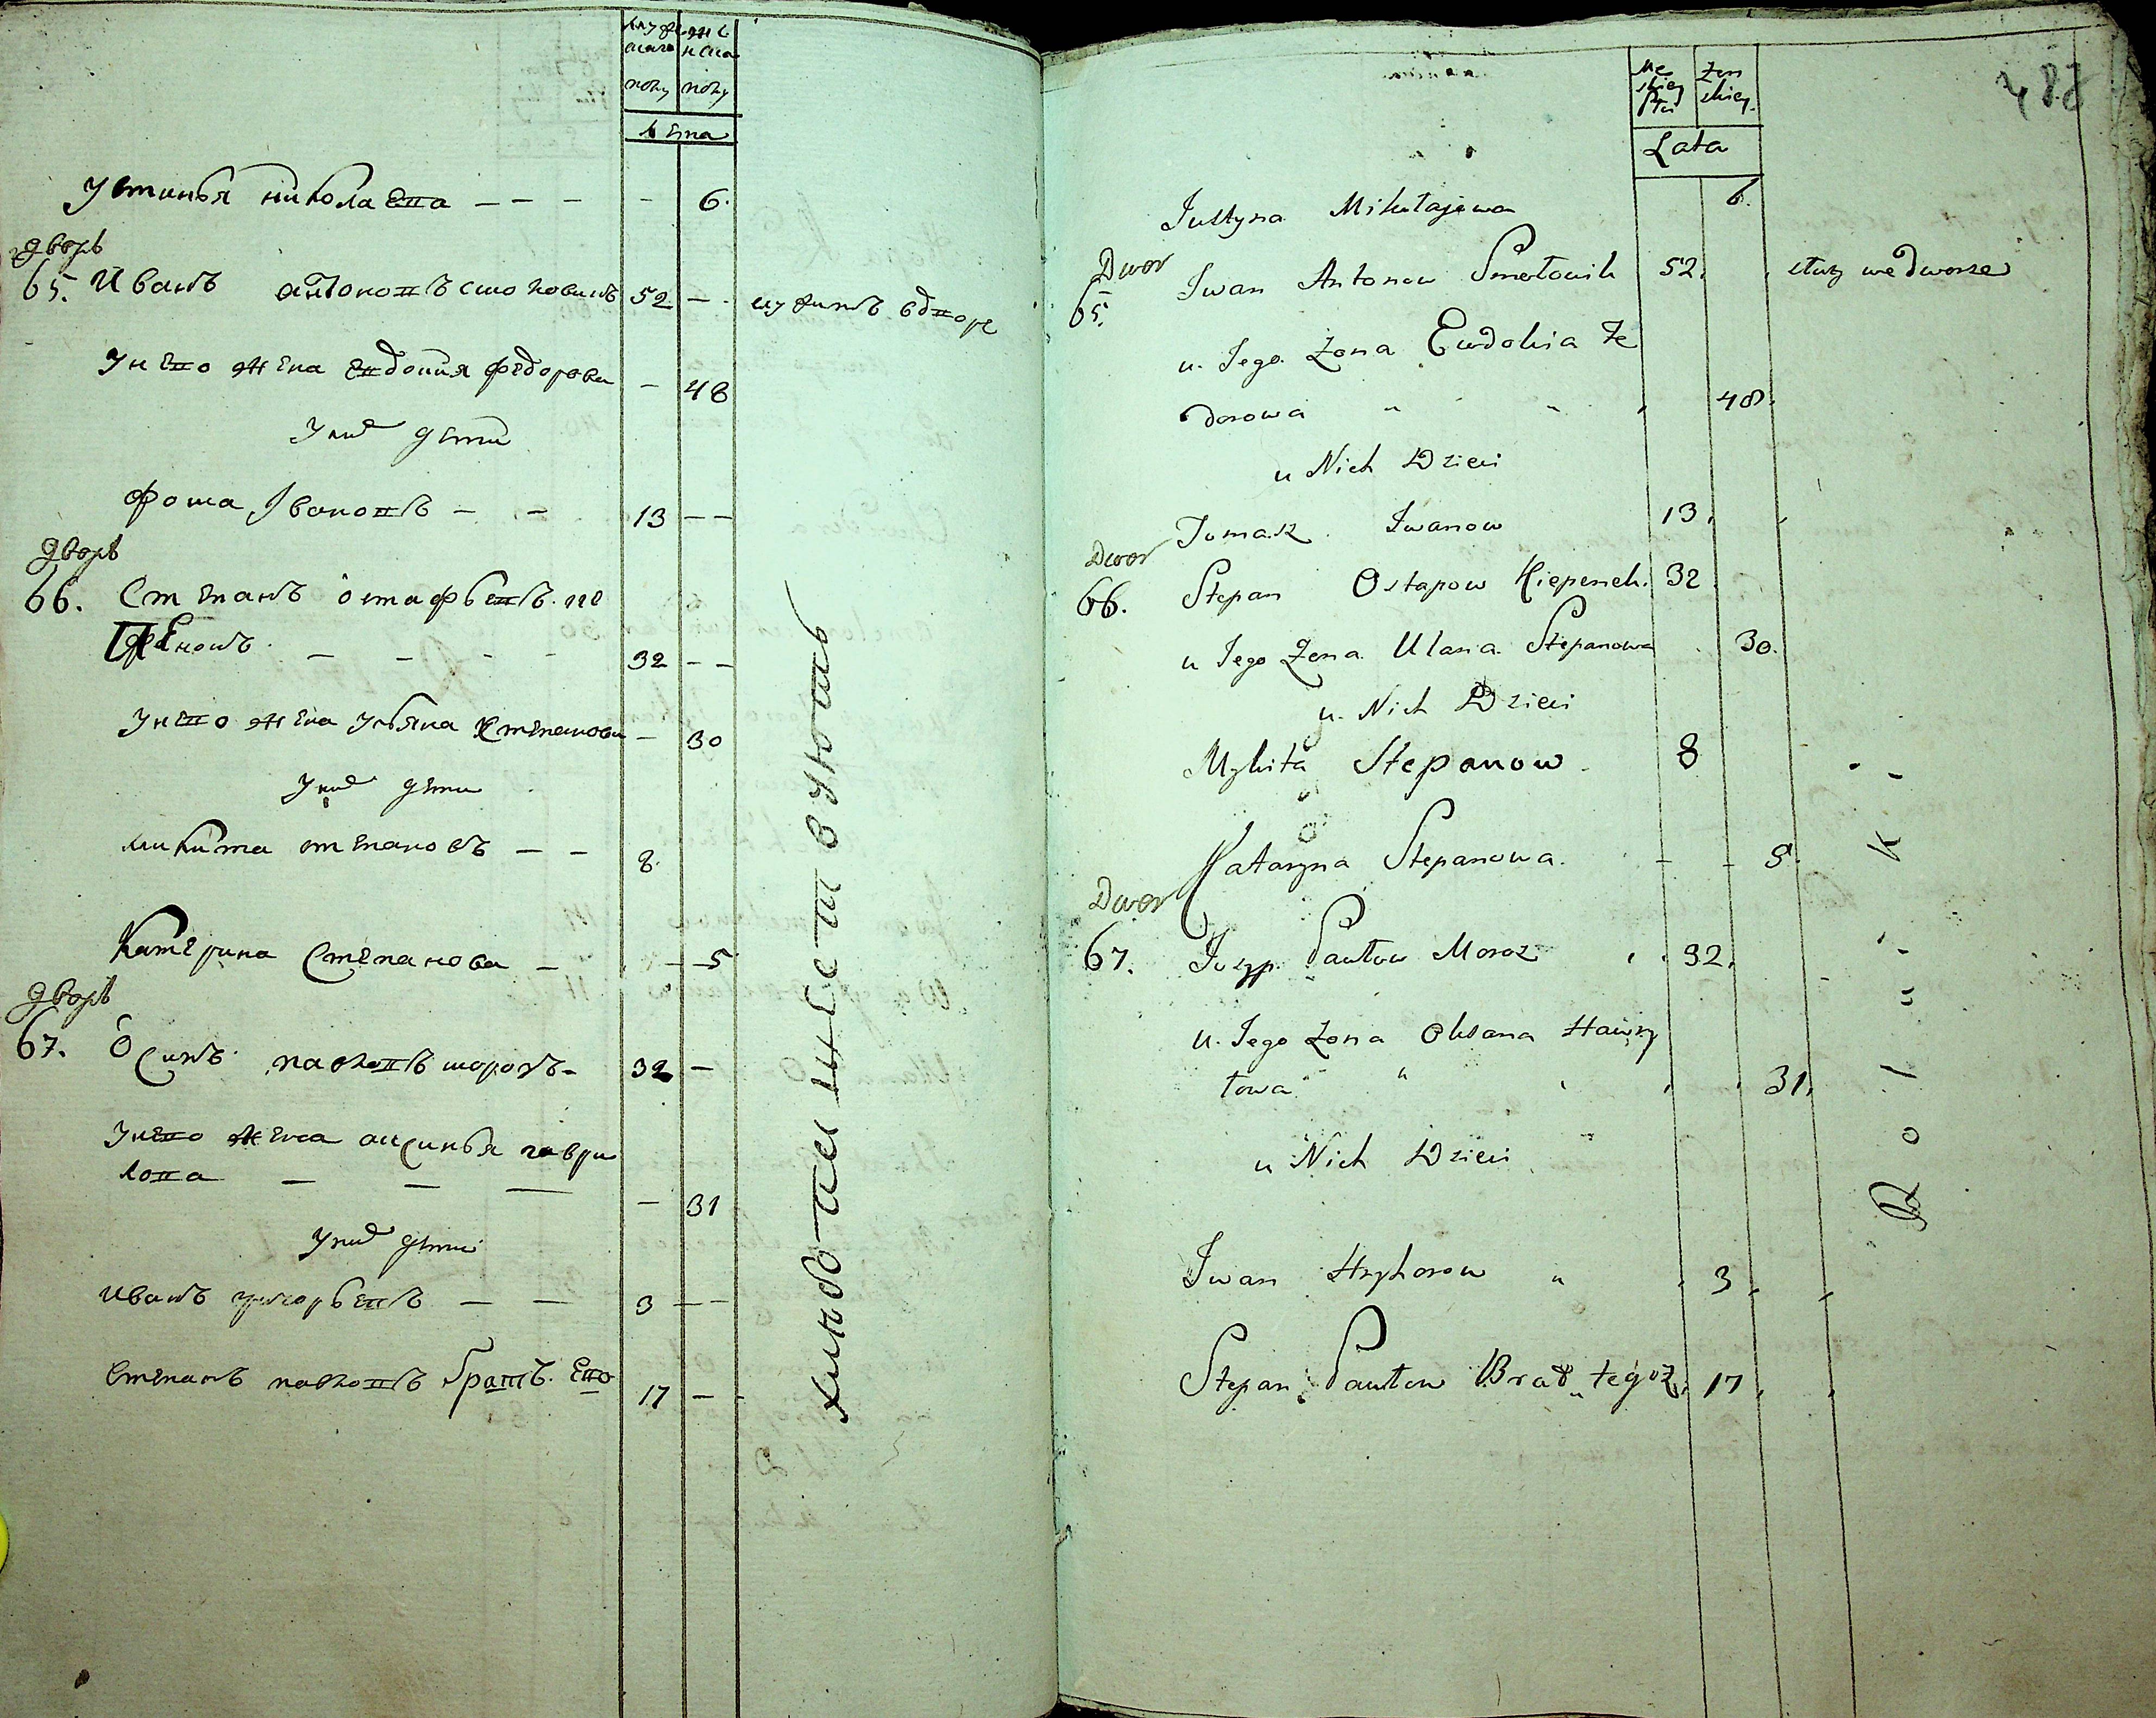 мужеска полу
женска полу
Лета
Устинья николаева — — — — 6.
дворъ
65. Иванъ антоновъ смоловикъ 52 — служитъ въ дворе
У него жена евдокия федорова — 48
У них дети
фома Ивановъ — — 13 — —
дворъ
66. Степанъ остафьевъ
32 — —
У него жена ульяна степанова — 30
У них дети
микита степановъ — — 8.
Катерина Степанова — — 5
дворъ
67. Осипъ павловъ морозъ 32 —
У него жена аксинья гаври
лова — — — — 31
У них дети
иванъ григорьевъ — — 3 — —
степанъ павловъ братъ его 17 — —
хлебопашествуютъ
487
Męskiey Płci
Żenskiey
Lata
Justyna Mikołajewa 6.
Dwor
65. Iwan Antonow Smołowik 52. służy we dworze
u Jego Żona Eudokia Fe
dorowa 48.
u Nich Dzieci
Tomasz Iwanow 13.
Dwor
66. Stepan Ostapow 32
u Jego Żona Ulana Stepanowa 30.
u Nich Dzieci
Mykita Stepanow 8
Kataryna Stepanowa. — — 5.
Dwor
67. Jozyp Pawłow Moroz 32.
u Jego Żona Oksana Hawry
łowa 31.
u Nich Dzieci
Iwan Hryhorow 3
Stepan Pawłow Brat tegoż 17
Rolniki